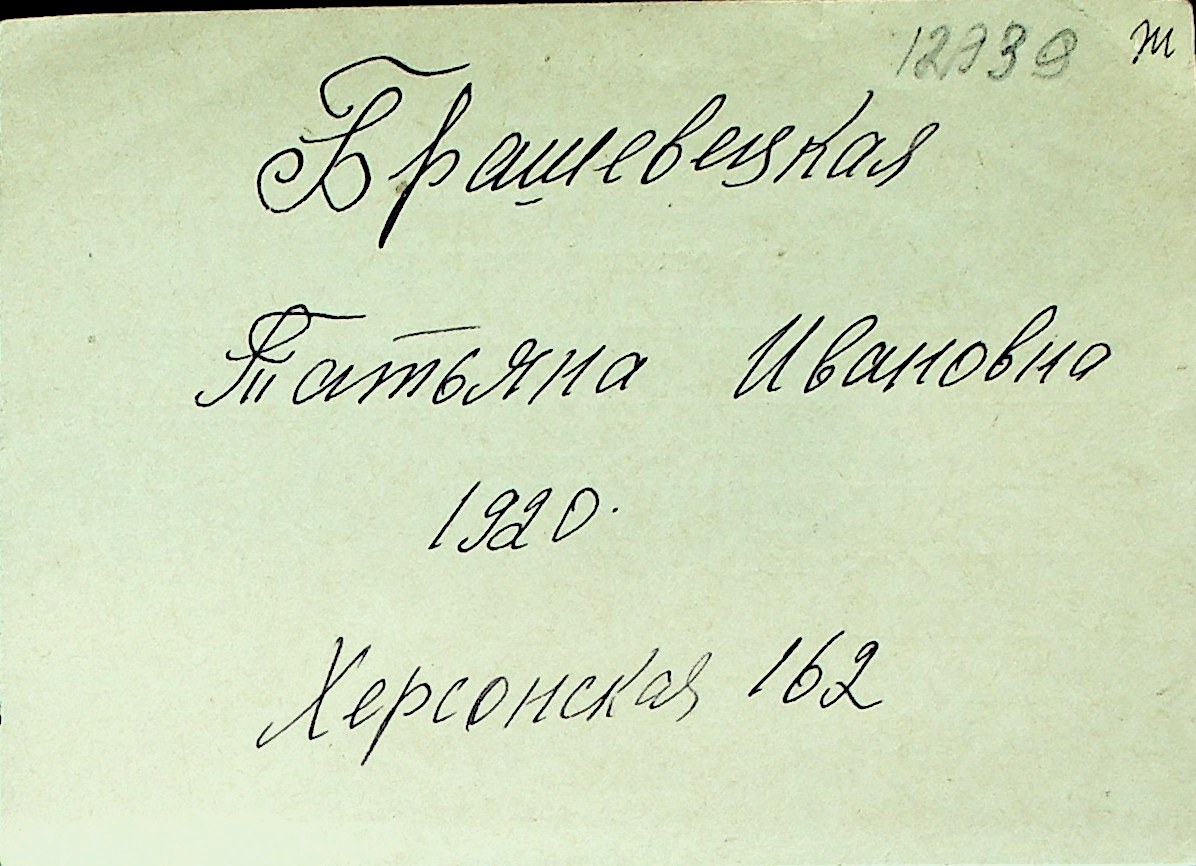 12739 ж
Брашевецкая
Татьяна Ивановна
1920.
Херсонская 162